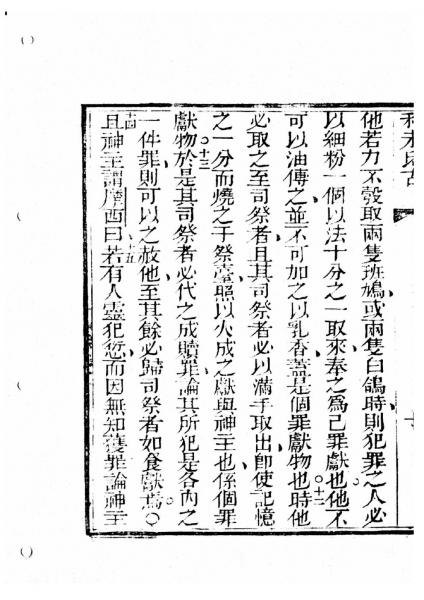 他若力不彀取兩隻班鳩或兩隻白鴿時則犯罪之人必
以細粉一個以法十分之一取來奉之為己罪獻也他不
可以油傅之並不可加之以乳香蓋是個罪獻物也○十二時他
必取之至司祭者且其司祭者必以滿手取出卽使記憶
之一分而燒之于祭臺照以火成之獻與神主也係個罪
獻物○十三於是其司祭者必代之成贖罪論其所犯是各內之
一件罪則可以之赦他至其餘必歸司祭者如食獻焉○
十四且神主謂摩西曰十五若有人靈犯愆而因無知獲罪論神主